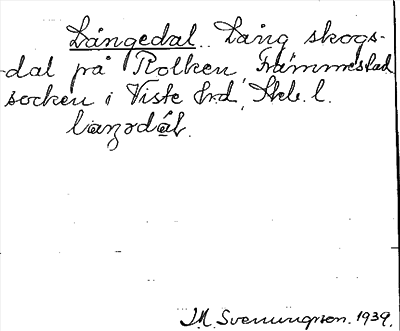 Långedal. Lång skogs-
dal på Rolken, Främmestad
socken i Viste hrd, Skb. l.
laŋədɑl.
M. Svenungson. 1939.